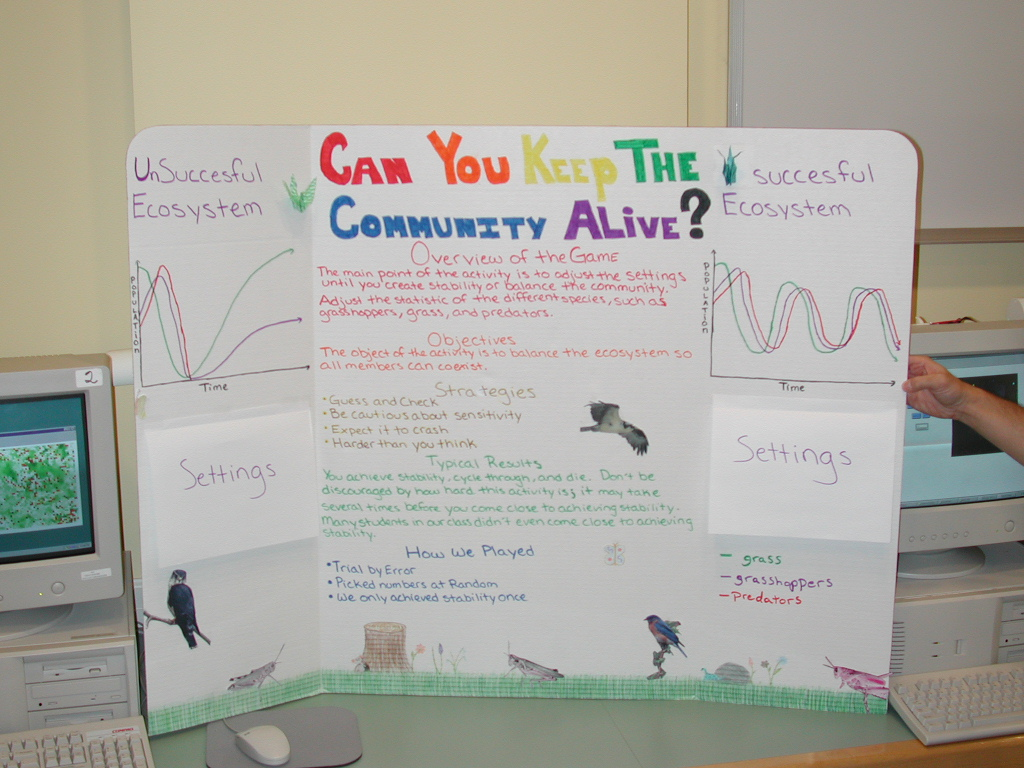 UnSuccesful
Ecosystem
POPULATION
Time
Settings
CAN YOU KEEP THE
COMMUNITY ALiVE?
Overview of the Game
The main point of the activity is to adjust the settings
until you create stability or balance the community.
Adjust the statistic of the different species, such as
grasshoppers, grass, and predators.
Objectives
The object of the activity is to balance the ecosystem so
all members can coexist.
Strategies
• Guess and Check
• Be cautious about sensitivity
• Expect it to crash
• Harder than you think
Typical Results
You achieve stability, cycle through, and die. Don't be
discouraged by how hard this activity is; it may take
several times before you come close to achieving stability.
Many students in our class didn't even come close to achieving
stability.
How We Played
• Trial by Error
• Picked numbers at Random
• We only achieved stability once
succesful
Ecosystem
POPULATION
Time
Settings
— grass
— grasshoppers
— Predators
2